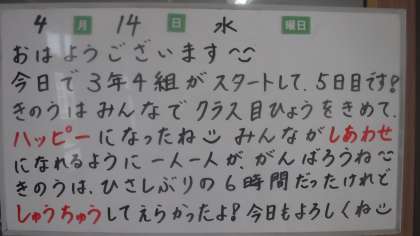 4月14日水曜日
おはようございます
今日で3年4組がスタートして、5日目です!
きのうはみんなでクラス目ひょうをきめて、
ハッピーになったね みんながしあわせ
になれるように一人一人が、がんばろうね
きのうは、ひさしぶりの6時間だったけれど
しゅうちゅうしてえらかったよ!今日もよろしくね